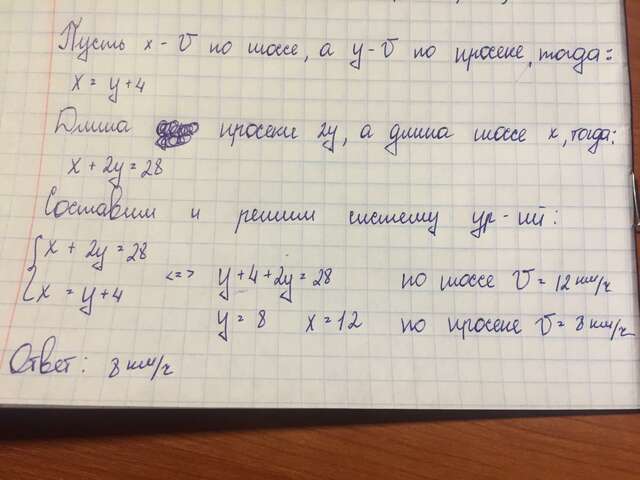 Пусть x - v по шоссе, а y - v по просеке, тогда:
x = y+4
Длина просеки 2y, а длина шоссе x, тогда:
x + 2y = 28
Составим и решим систему ур-ий:
{ x + 2y = 28
x = y+4 <=> y+4+2y = 28 по шоссе v = 12 км/ч
y = 8 x = 12 по просеке v = 8 км/ч
Ответ: 8 км/ч